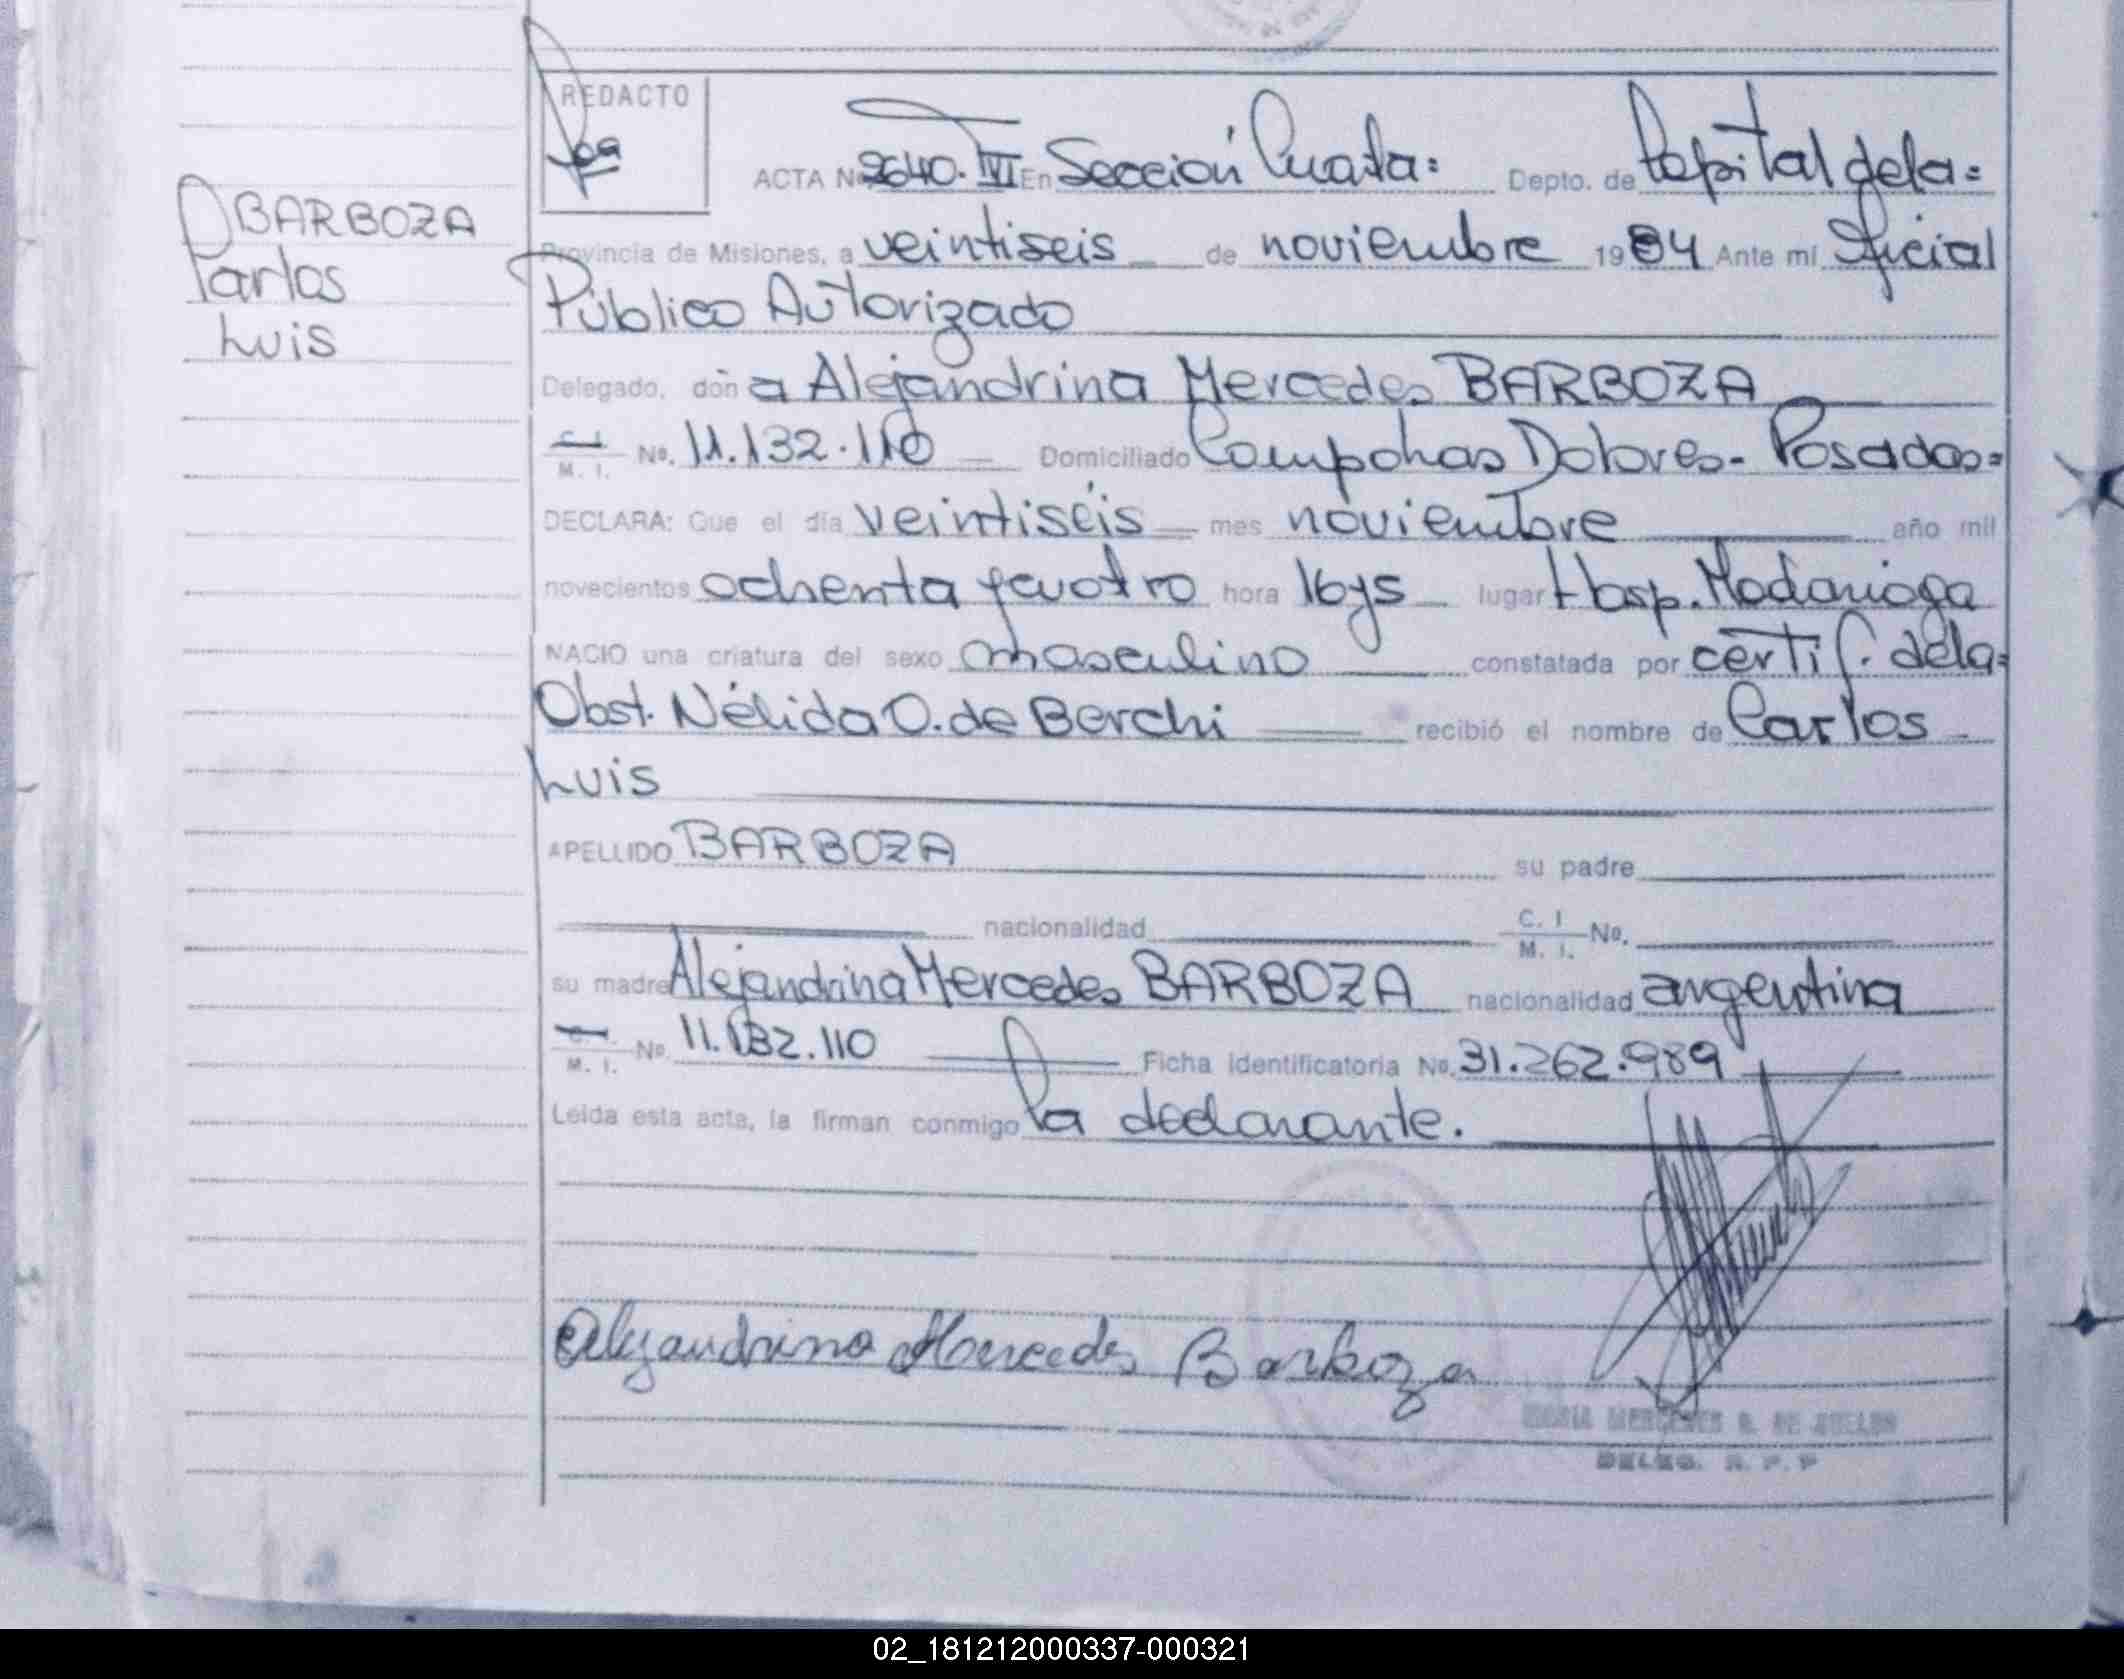 REDACTO
ACTA Nº 2640. IVI En Sección Cuarta= Depto. de Capital de la=
BARBOZA
Carlos
Luis
Provincia de Misiones, a veintiseis de noviembre 1984 Ante mí Oficial
Público Autorizado
Delegado, don a Alejandrina Mercedes BARBOZA
C. I. M. I. No. 11.132.110 Domiciliado Dolores- Posadas=
DECLARA: Que el día veintiséis mes noviembre año mil
novecientos ochenta y cuatro hora 16ys lugar Hosp. Madariaga
NACIO una criatura del sexo masculino constatada por certif. de la=
Obst. Nélida O. de Berchi recibió el nombre de Carlos
Luis
APELLIDO BARBOZA su padre
nacionalidad C. I M. I. No.
su madre Alejandrina Mercedes BARBOZA nacionalidad argentina
C. I. M. I. No. 11.132.110 Ficha Identificatoria No. 31.262.989
Leida esta acta, la firman conmigo la declarante.
Alejandrina Mercedes Barboza
MARIA MERCEDES DE
DELEG. R. P. P
02_181212000337-000321